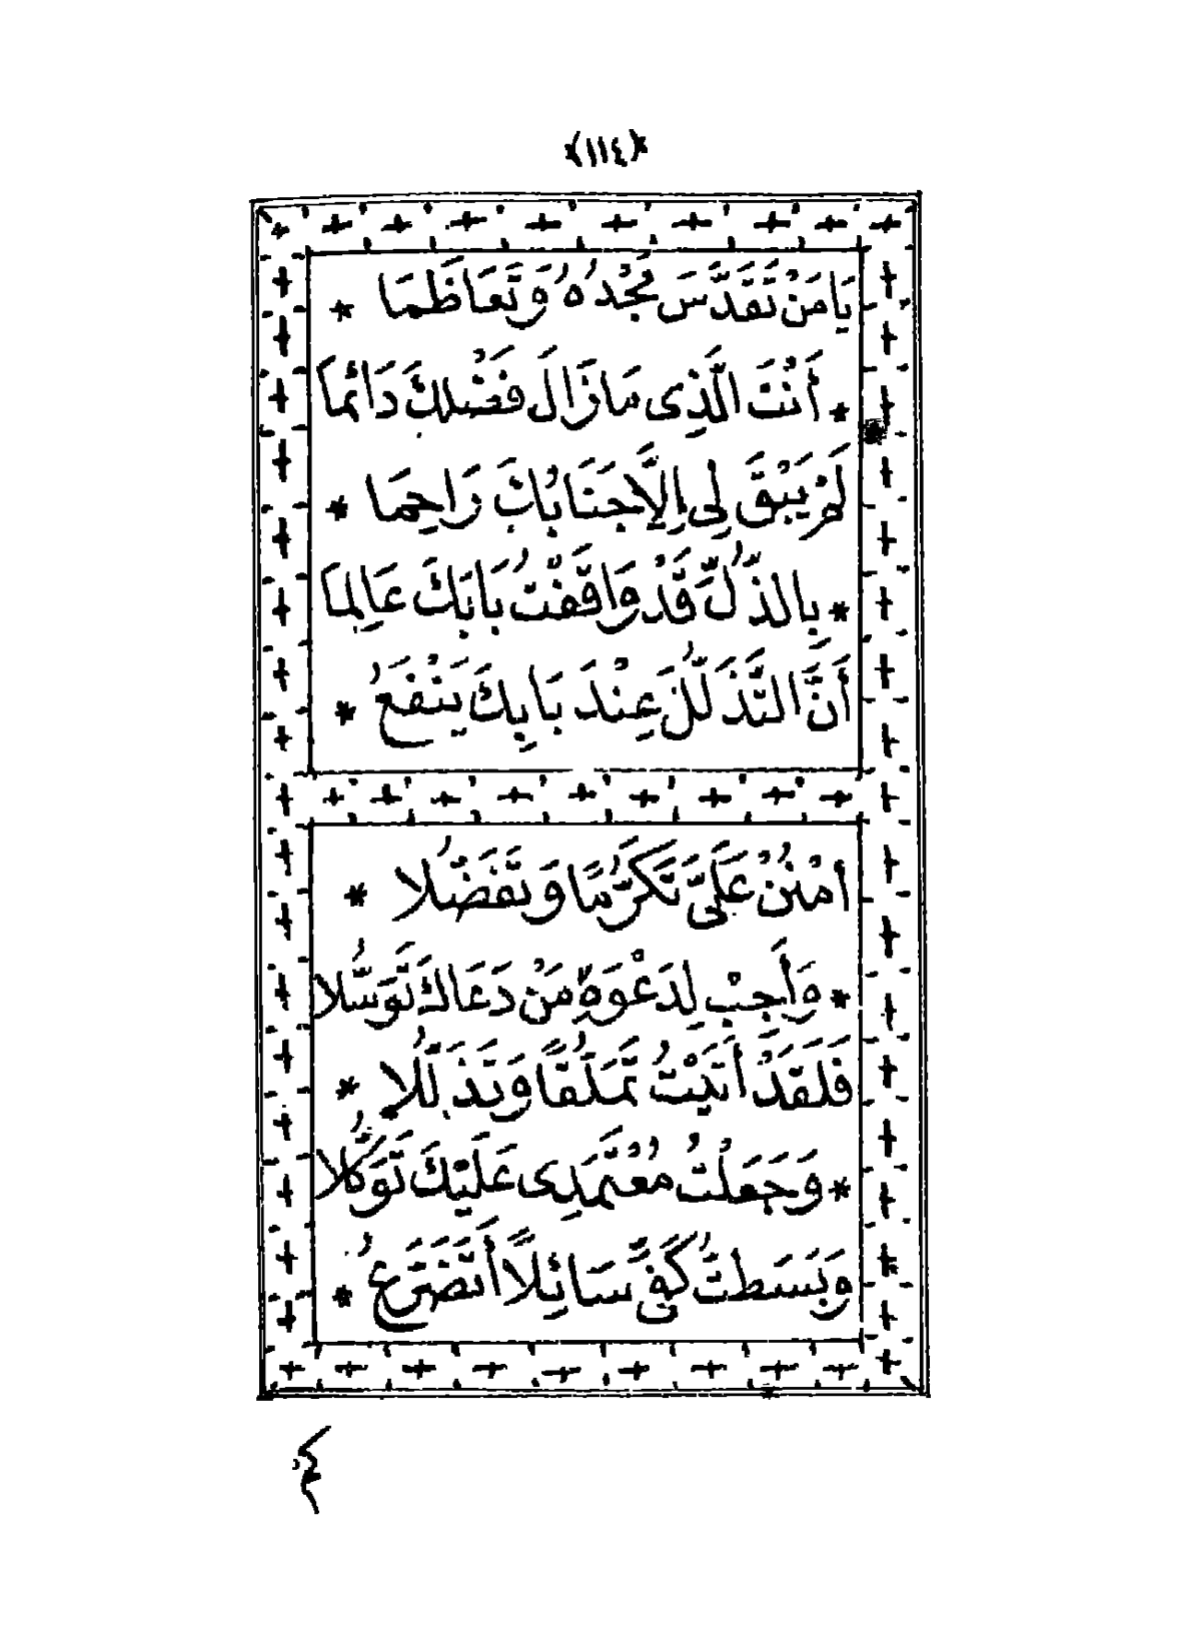 ﴿١١٤﴾
يَا مَنْ تَقَدَّسَ مَجْدُهُ وَتَعَاظَمَا *
* أَنْتَ الَّذِى مَازَالَ فَضْلُكَ دَائِمَا
لَمْ يَبْقَ لِى إِلَّا جَنَابُكَ رَاحِمَا *
* بِالذُّلِّ قَدْ وَافَقْتُ بَابَكَ عَالِمَا
أَنَّ التَّذَلُّلَ عِنْدَ بَابِكَ يَنْفَعُ *
اُمْنُنْ عَلَىَّ تَكَرُّمًا وَتَفَضُّلَا *
* وَأَجِبْ لِدَعْوَةِ مَنْ دَعَاكَ تَوَسُّلَا
فَلَقَدْ أَتَيْتُ تَمَلُّقًا وَتَذَلُّلَا *
* وَجَعَلْتُ مُعْتَمَدِى عَلَيْكَ تَوَكُّلَا
وَبَسَطْتُ كَفِّى سَائِلًا أَتَضَرَّعُ *